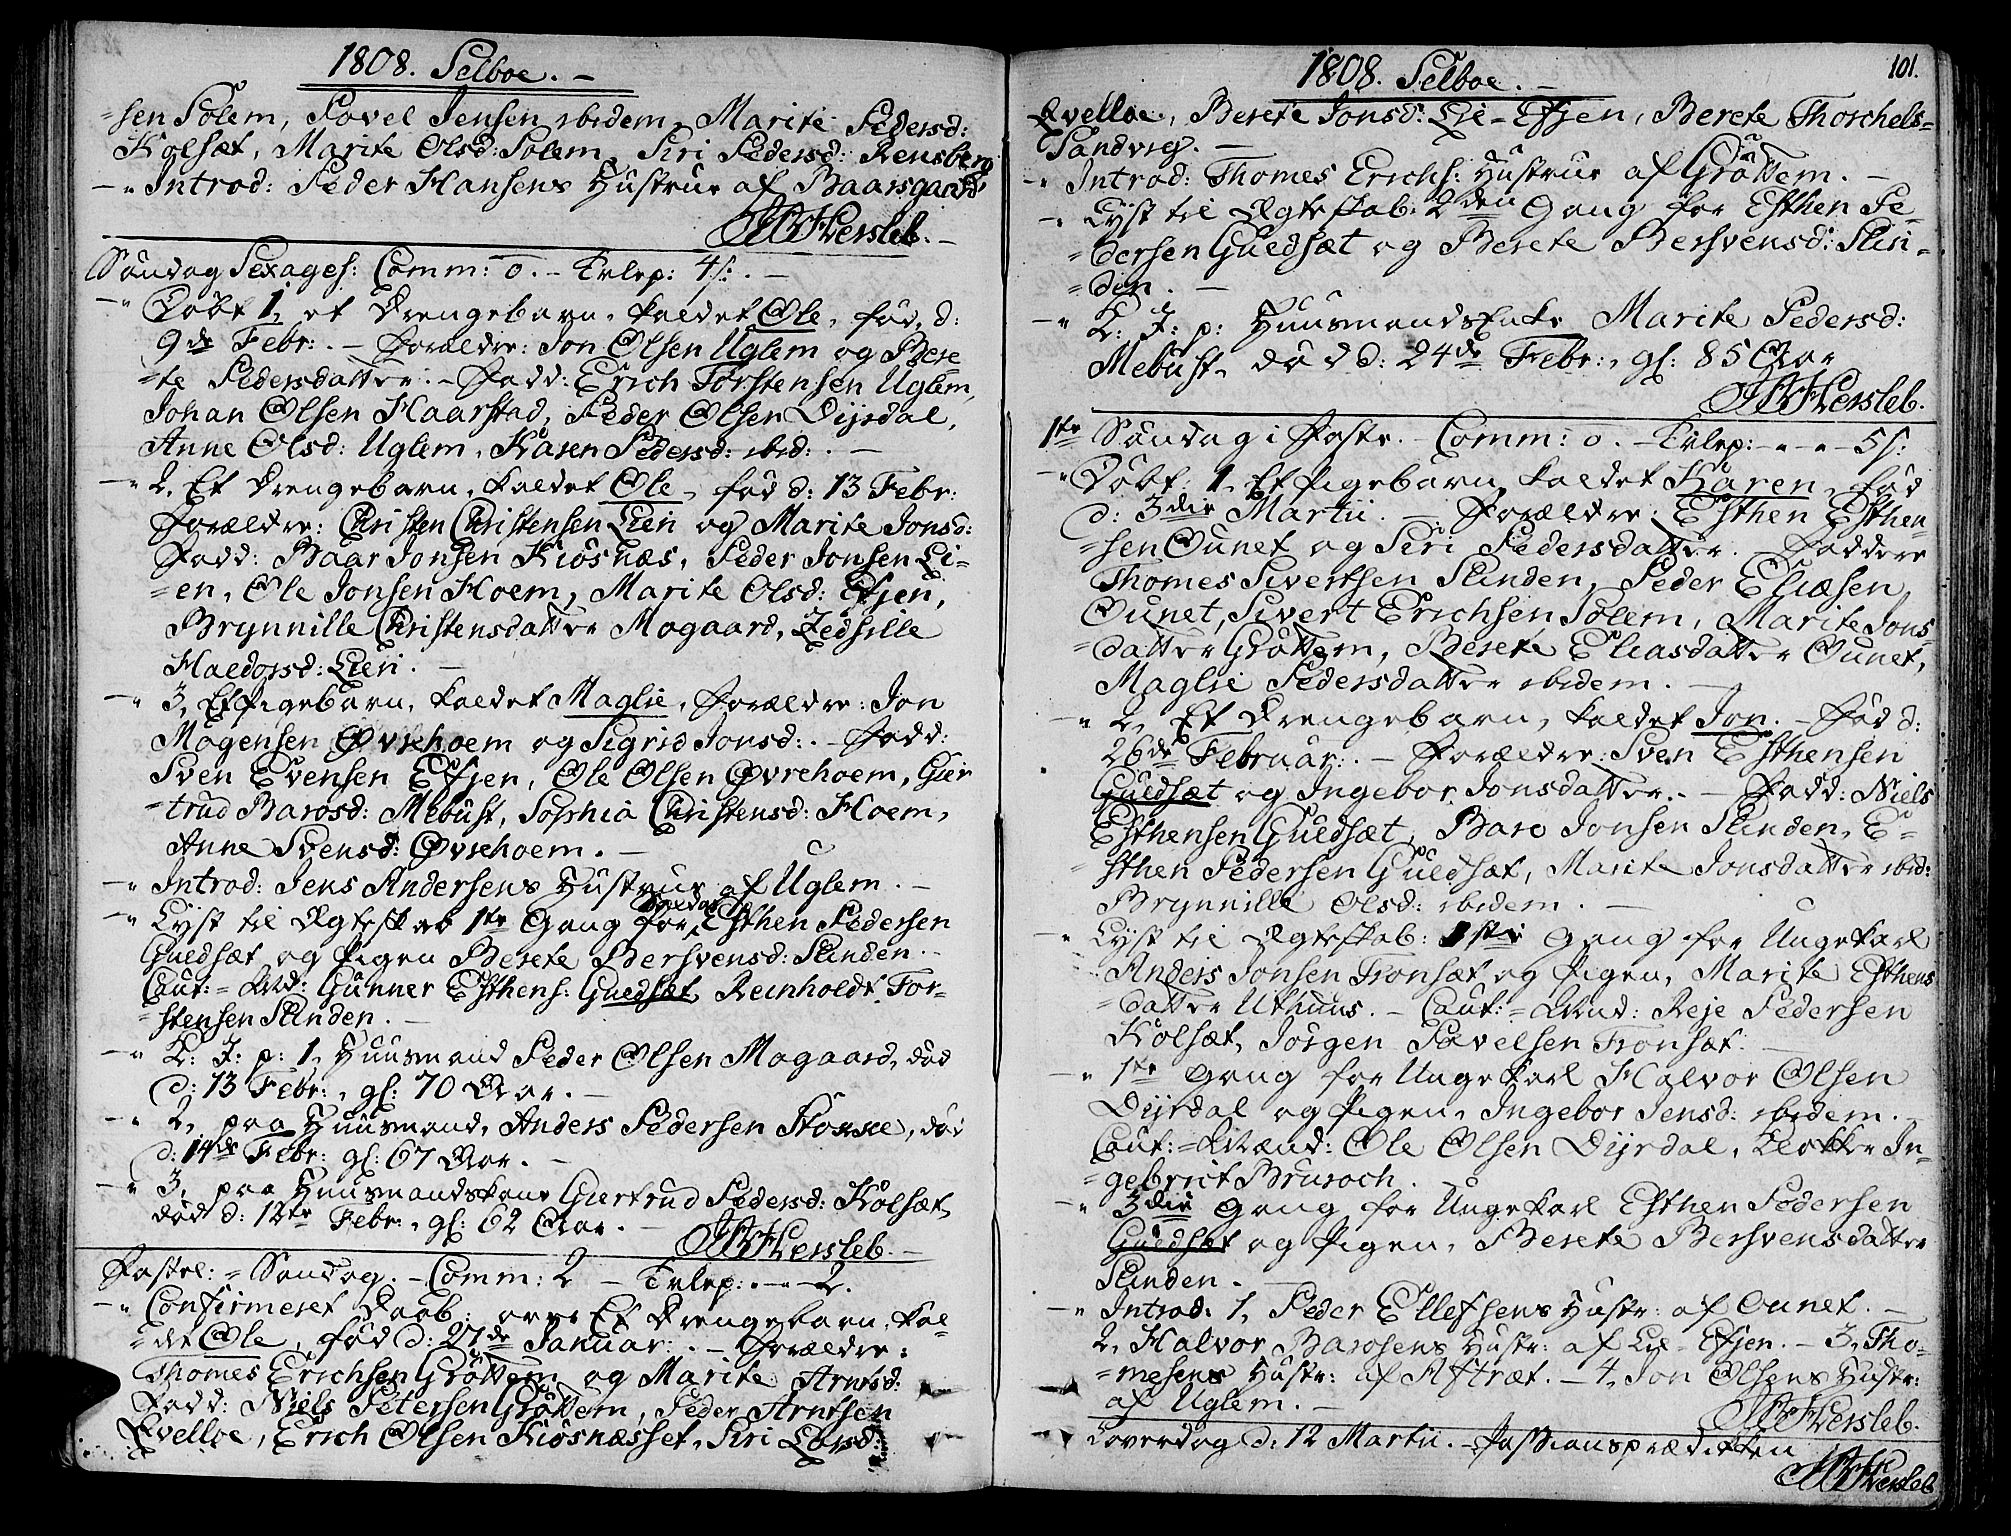 1808. Selboe. –
=sen Solem, Povel Jensen ibidem, Marite Pedersd:
Kolset, Marite Olsd: Solem, Siri Pedersd: Rensberg
–" Introd: Peder Hansens Hustrue af Baarsgaard
Hersleb. –
Søndag Sexages: Comm: 0. – Tvlep: 4 s: –
–" Døbt 1, et Drengebarn, kaldet Ole, fød, d:
9de Febr: – Forældre: Jon Olsen Uglem og Bere
=te Pedersdatter. – Fadd: Erich Torstensen Uglem,
Johan Olsen Haarstad, Peder Olsen Dyrdal,
Anne Olsd: Uglem, Karen Pedersd: ibid: –
–" 2, Et Drengebarn, kaldet Ole, fød d: 13 Febr:
Forældre: Christen Christensen Lien og Marite Jonsd:
Fadd: Baar Jonsen Kiøsnæs, Peder Jonsen Li=
=en, Ole Jonsen Hoem, Marite Olsd: Efjen,
Brynnille Christensdatter Mogaard, Zedsille
Haldorsd: Lien. –
–" 3, Et Pigebarn, kaldet Maglie, Forældre: Jon
Mogensen Øvrehoem og Sigrid Jonsd: – Fadd:
Sven Evensen Efjen, Ole Olsen Øvrehoem, Gier
=trud Barosd: Mebust, Sophia Christensd: Hoem,
Anne Svensd: Øvrehoem. –
–" Introd: Jens Andersens Hustrue af Uglem. –
–" Lyst til Ægteskab 1te Gang for Soldat Esthen Pedersen
Guldsæt og Pigen Berete Bersvensd: Slinden. –
Caut:=Md: Gunner Esthens: Guldsæt, Reinholdt Tor=
=stensen Slinden. –
–" K: J: p: 1, Huusmand Peder Olsen Mogaard, død
d: 13 Febr:, gl: 70 Aar. –
–" 2, paa Huusmand, Anders Pedersen Stokke, død
d: 14de Febr: gl: 67 Aar. –
–" 3, paa Huusmandskone Giertrud Pedersd: Kolsæt,
død d: 12te Febr:, gl: 62 Aar. –
Hersleb. –
Fastel:=Søndag. – Comm: 2 – Tvlep: – " – 2.
–" Confirmeret Daab over Et Drengebarn, kal=
=det Ole, fød d: 27de Januar: – Forældre:
Thomes Erichsen Grøttem og Marite Arntsd:
Fadd: Niels Petersen Grøttem, Peder Arntsen
Qvelloe, Erich Olsen Kiøsnæsset, Siri Larsd:
1808. Selboe. –
101.
Qvelloe, Berete Jonsd: Lie-Efjen, Berete Thorchels=
Sandvig. –
–" Introd: Thomes Erichs: Hustrue af Grøttem. –
–" Lyst til Ægteskab: 2den Gang for Esthen Pe=
=dersen Guldsæt og Berete Bersvensd: Slin=
=den. –
–" K: J: p: Huusmands Enke Marite Pedersd:
Mebust, død d: 24de Febr:, gl: 85 Aar
Hersleb.
1te Søndag i Faste. – Comm: 0. – Tvlep: – " – " – 5 s:
–" Døbt: 1, Et Pigebarn, kaldet Karen, fød
d: 3die Martii. – Forældre: Esthen Esthen=
=sen Ounet og Siri Pedersdatter. – Faddere
Thomes Sivertsen Slinden, Peder Eliæsen
Ounet, Sivert Erichsen Solem, Marite Jons
=datter Grøttem, Berete Eliasdatter Ounet,
Maglie Pedersdatter ibidem. –
–" 2, Et Drengebarn, kaldet Jon. – Fød d:
26de Februar: – Forældre: Sven Esthensen
Guldsæt og Ingebor Jonsdatter. – Fadd: Niels
Esthensen Guldsæt, Baro Jonsen Slinden, E=
=sthen Pedersen Guldsæt, Marite Jonsdatter ibid:
Brynnille Olsd: ibidem. –
–" Lyst til Ægteskab: 1ste Gang for Ungekarl
Anders Jonsen Tronsæt og Pigen, Marite Esthens
=datter Uthuus. – Caut:=Mnd: Reje Pedersen
Kolsæt, Jørgen Povelsen Tronsæt. –
–" 1te Gang for Ungekarl Halvor Olsen
Dyrdal og Pigen, Ingebor Jensd: ibidem. –
Caut:=Mænd: Ole Olsen Dyrdal, Klokker In=
=gebrict Bruroch. –
–" 3die Gang for Ungekarl Esthen Pedersen
Guldsæt og Pigen, Berete Bersvensdatter
Slinden. –
–" Introd: 1, Peder Ellefsens Hustr: af Ounet. –
2, Halvor Barosens Hustr: af Lie-Efjen. – 3, Tho=
=mesens Hustr: af Aftræt. – 4, Jon Olsens Hustr:
af Uglem. –
Hersleb.
Løverdag d: 12 Martii. – Passionsprædikken
Hersleb